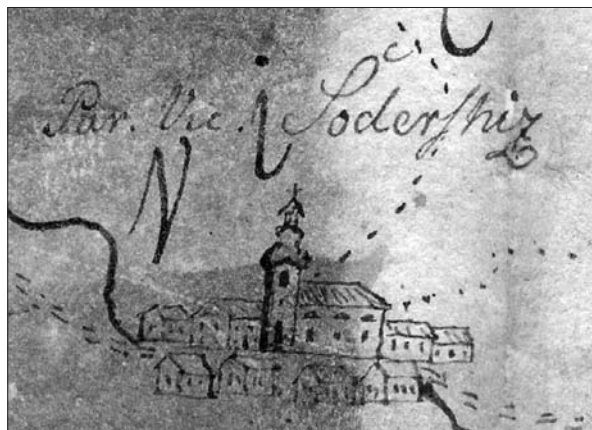 Par. Vic. Sodershiz
N i